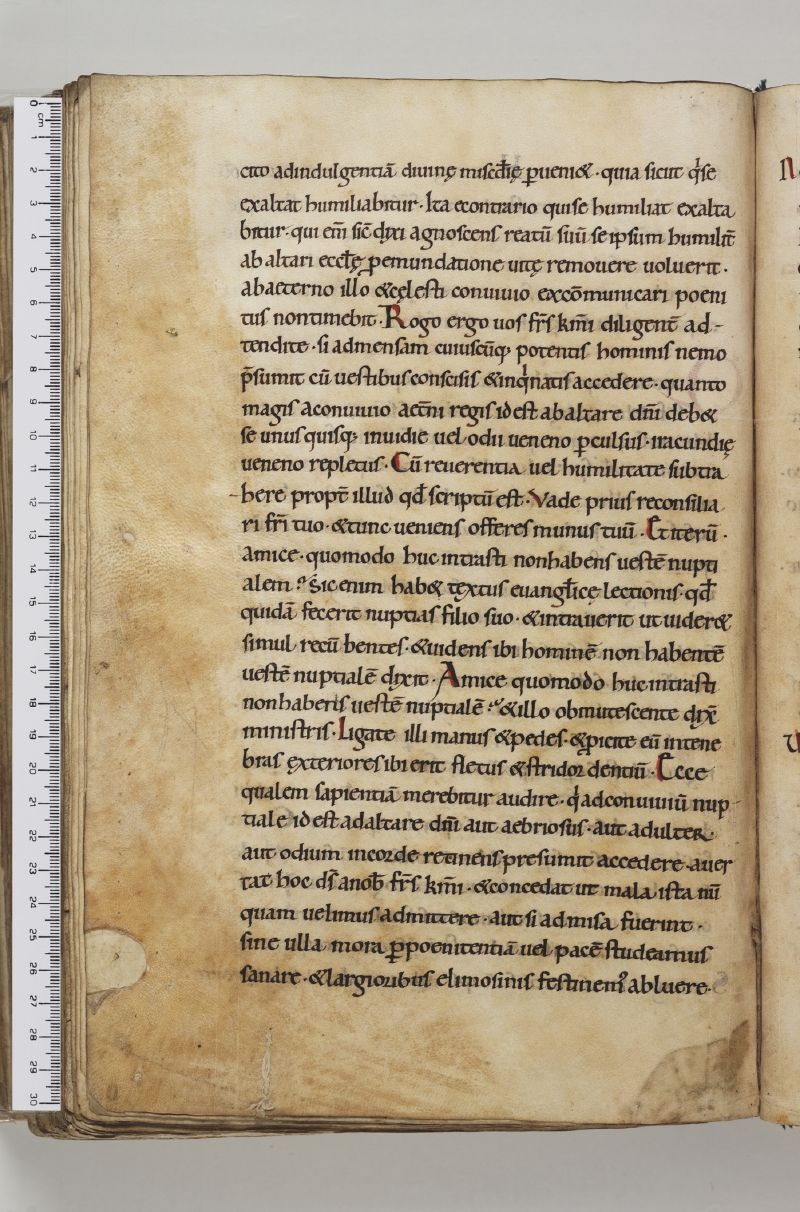 cito adindulgentiā diuinę misc̄dię ꝑueni&. quia sicut q̇se
exaltat humiliabitur. Ita econtrario quise humiliat exalta
bitur. qui em̄ sic̄ dixi agnoscens reatū suū se ipsum humilit̄
ab altari eccłę ꝓemundatione uitę remouere uoluerit.
abaeterno illo &cęlesti conuiuio excōmunicari poeni
tus nontimebit. Rogo ergo uos fr̄s km̄i diligent̄ ad-
tendite. si admensam cuiuscūq; potentis hominis nemo
p̄sumit cū uestibus conscisis &inq̇natis accedere. quanto
magis aconuiuio aet̄ni regis id est ab altare dn̄i deb&
se unus quisq; inuidie uel odii ueneno ꝑculsus. iracundię
ueneno repletus. Cū reuerentia uel humilitate subtra
here propt̄ illud qd̄ scriptū est. Vade prius reconsilia
ri fr̄i tuo. &tunc ueniens offeres munus tuū. Et iterū.
Amice. quomodo huc intrasti nonhabens uestē nupti
alem? Sic enim hab& tęxtus euangłicę lectionis. qd̄
quidā fecerit nuptias filio suo. &intrauerit ut uider&
simul recū bentes. &uidens ibi hominē non habentē
uestē nuptialē dixit. Amice quomodo huc intrasti
nonhabens uestē nuptialē? &illo obmutescente dix̄
ministris. Ligate illi manus &pedes. &ꝓicite eū intene
bras ęxteriores ibi erit fletus &stridor dentiū. Ecce
qualem sapientiā merebitur audire. q̇ adconuiuiū nup
tiale id est adaltare dn̄i aut aebriosus. aut adulter.
aut odium incorde retinens presumit accedere. auer
tat hoc ds̄ anob̄ fr̄s km̄i. &concedat ut mala ista nū
quam uelimus admittere. aut si admisa fuerint.
sine ulla mora ꝑ poenitentiā uel pacē studeamus
sanare. &largioribus elimosinis festinem᾽ abluere.